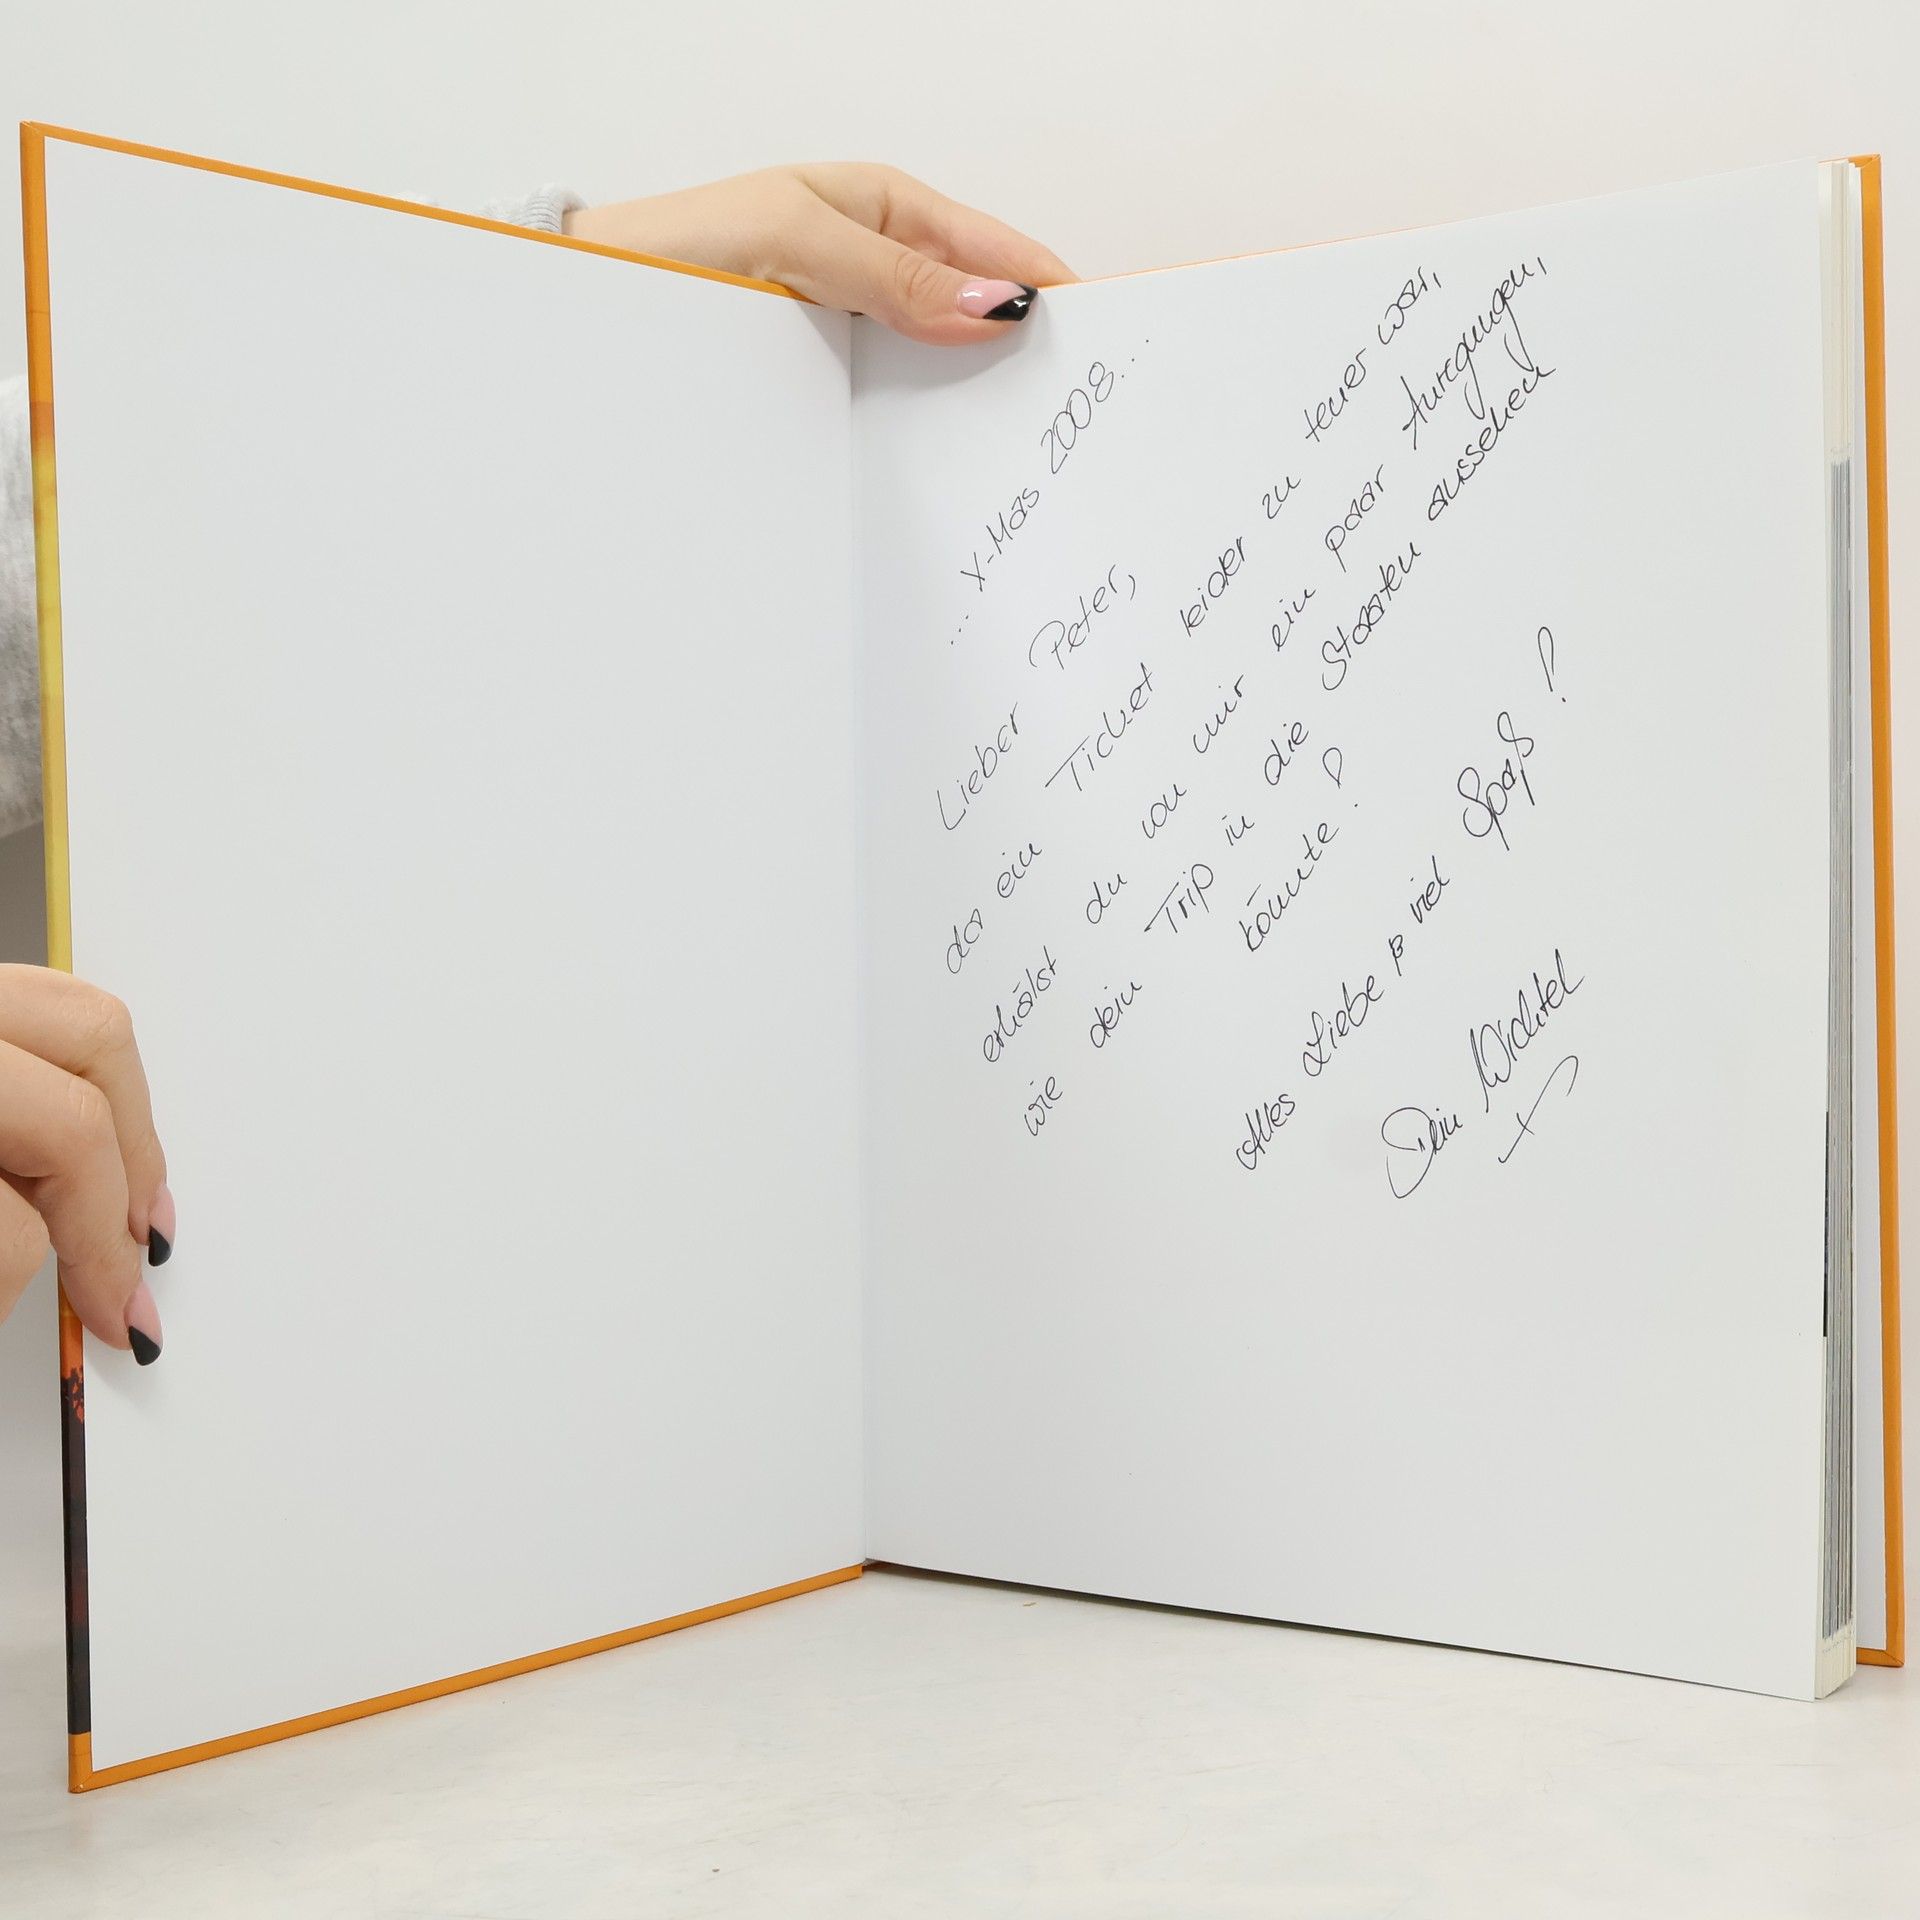 ... X-Mas 2008...
Lieber Peter,
da ein Ticket leider zu teuer war,
erhälst du von mir ein paar Anregungen,
wie dein Trip in die Staaten aussehen
könnte!
Alles Liebe & viel Spaß!
Dein Wichtel